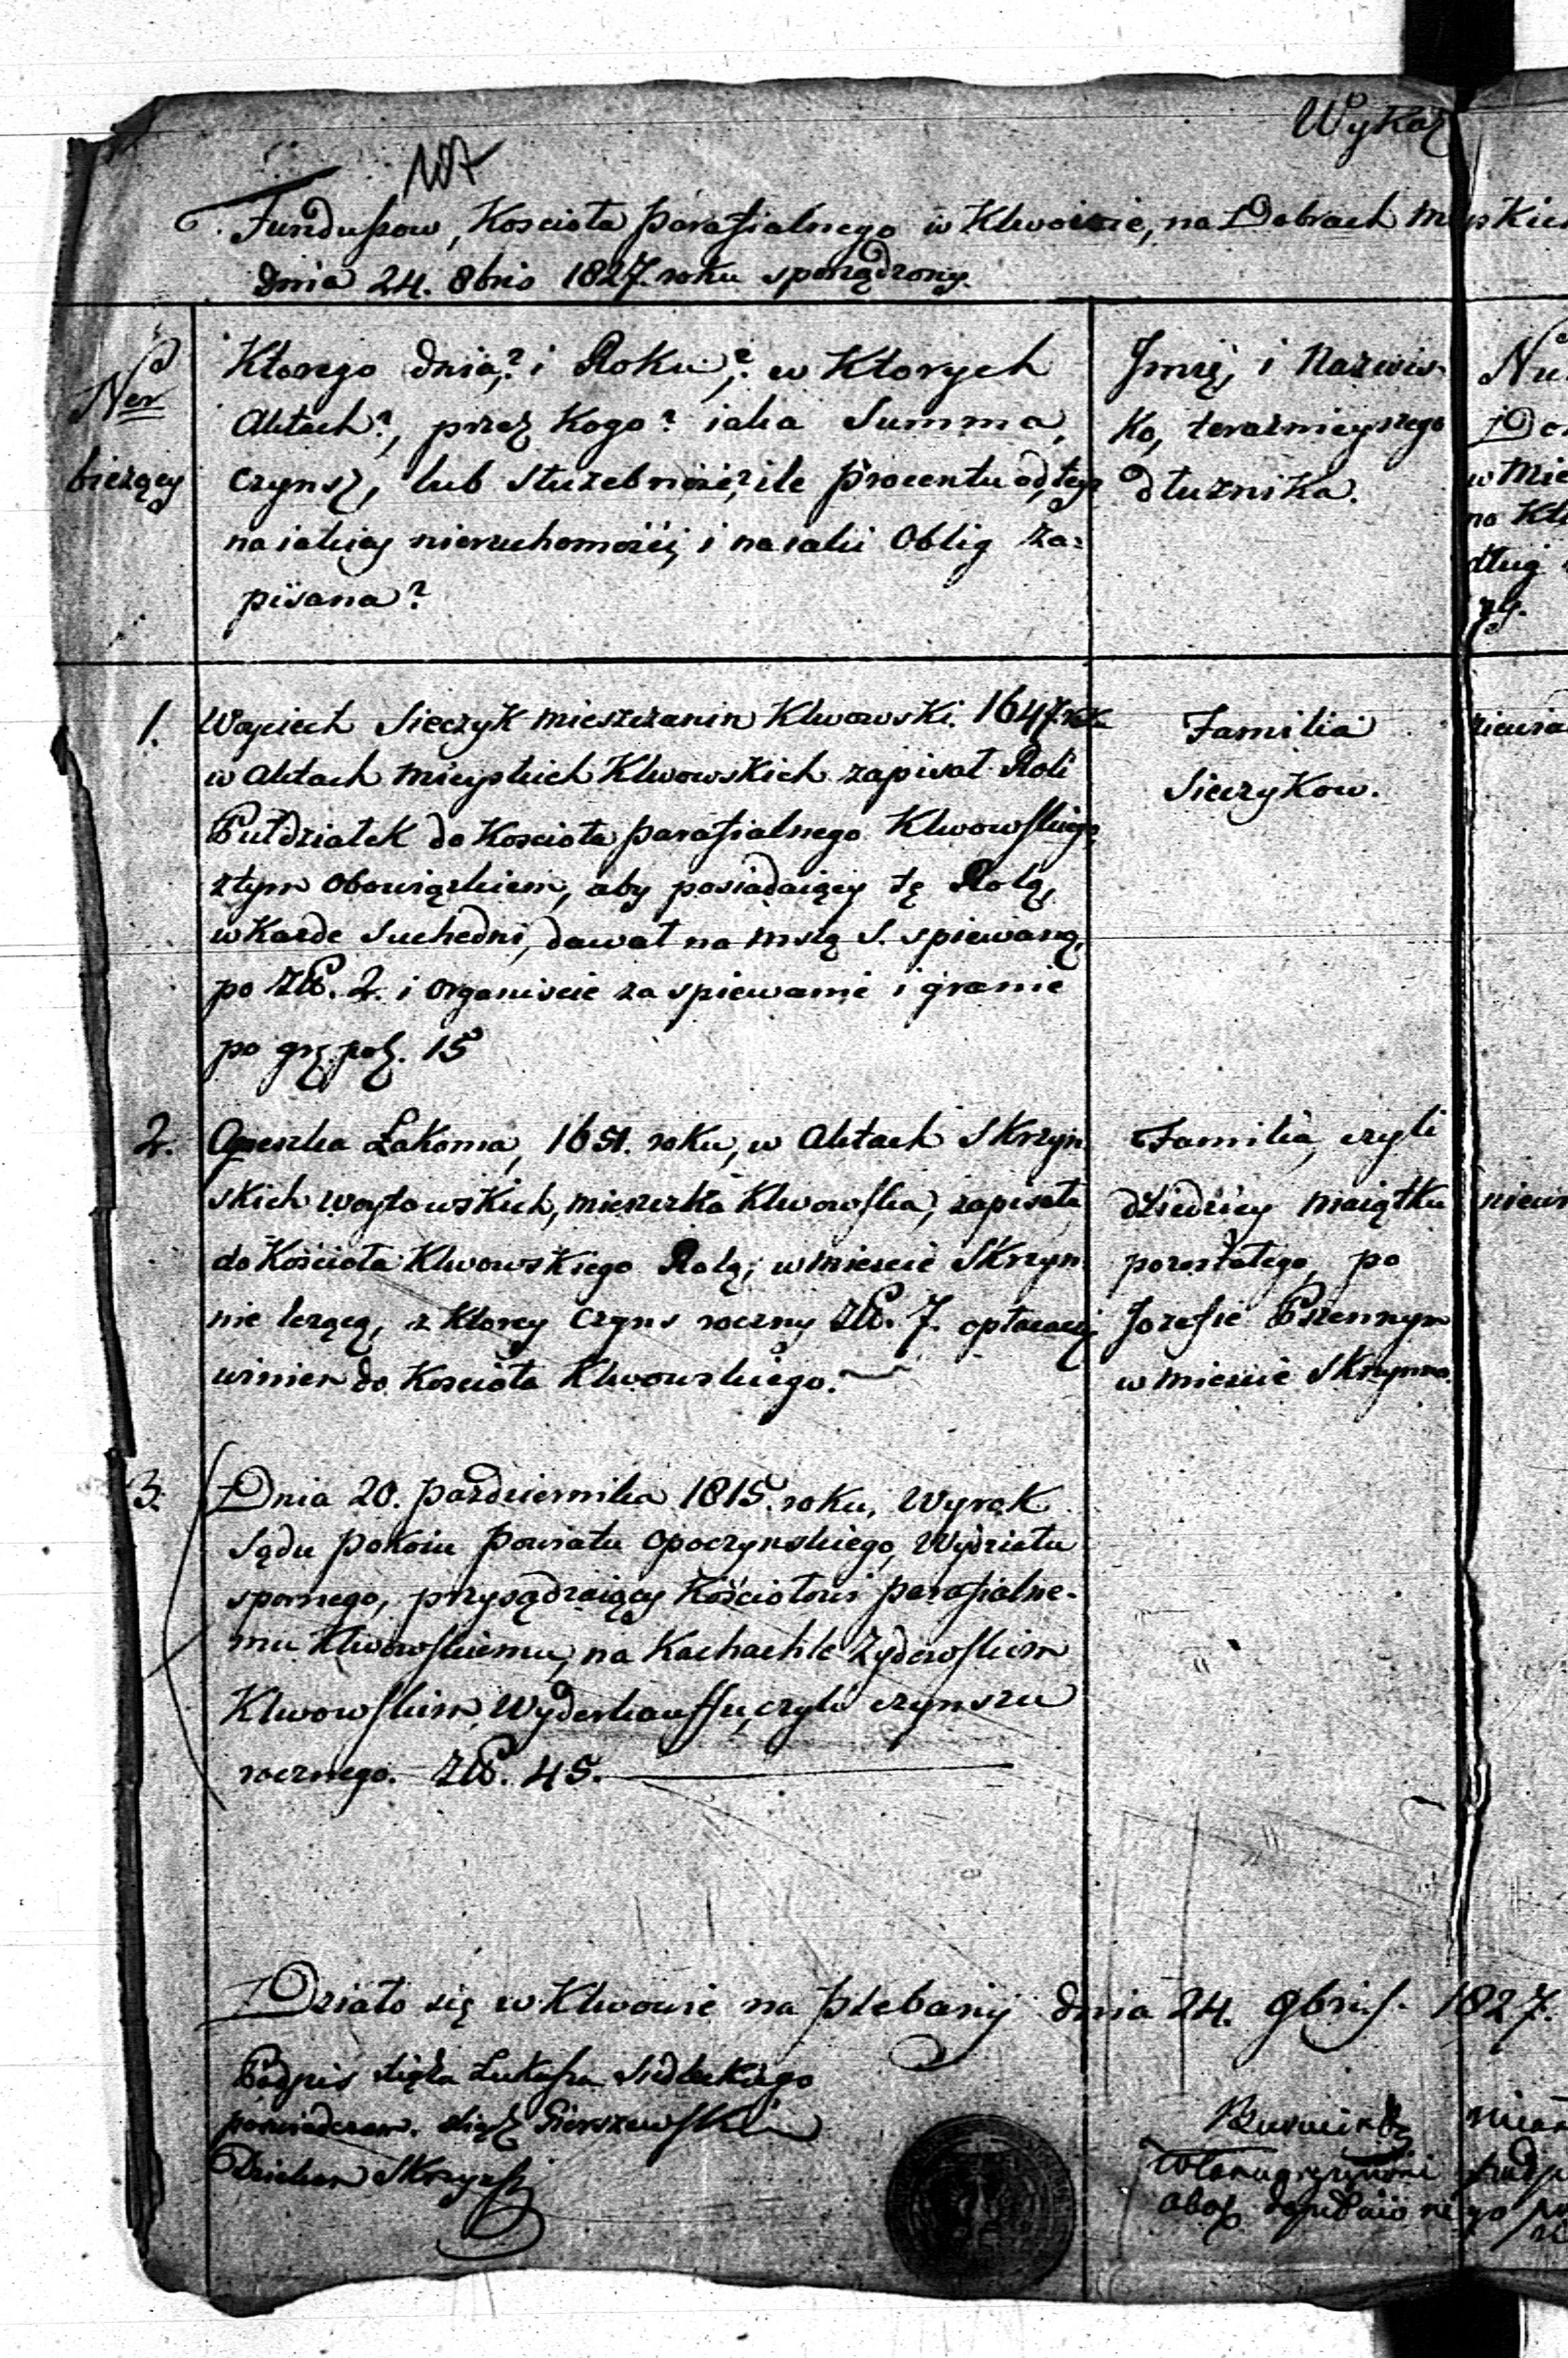 Wykaz
107
Funduszow, Koscioła parafialnego w Klwowie, na Dobrach
dnia 24. 8bris 1827. roku sporządzony.
Ner
bieżący
Ktorego dnia? i Roku? w Ktorych
Aktach?, przez kogo? iaka Summa,
Czynsz, lub służebność? ile procentu od tey
na iakiey nieruchomości, i na iaki Oblig za-
pisana?
Jmię, i Nazwis-
ko, teraznieyszego
dłuznika.
1. Woyciech Sieczyk mieszczanin Klwowski 1647.
w Aktach mieyskich Klwowskich zapisał Roli
Pułdziałek do Koscioła parafialnego Klwowskiego
z tym obowiązkiem, aby posiadaiący tę Rolą,
w Kazde Suchedni, dawał na mszą S. spiewaną,
po ZłP. 2. i organiscie za spiewanie i granie
po gr. pol. 15
Familia
Sieczykow.
2. Agneszka Łakoma, 1651. roku, w Aktach Skrzyn
skich woytowskich, mieszczka Klwowska, zapisała
do Kościoła Klwowskiego Rolą, w miescie Skrzyn
nie leżącą, z Ktorey Czyns roczny ZłP. 7. opłacacy
winien do Kosciola Klwowskiego.
Familia, czyli
dziedzicy maiątku
pozostałego, po
Jozefie Pszennym
w miescie Skrzynno.
3. Dnia 20. pazdziernika 1815. roku, Wyrok
Sądu pokoiu powiatu opoczynskiego, Wydziału
spornego, przysądzaiący Kościołowi parafialne-
mu Klwowskiemu, na Kachachle Zydowskim
Klwowskim, Wyderkauffu, czyli czynszu
rocznego. ZłP. 45.
Działo się w Klwowie na plebanij dnia 24. 9bris. 1827.
Podpis xiędza Łukasza Siedleckiego
poswiadczam. xiądz
Dziekan Skrzyń
Burmistrz